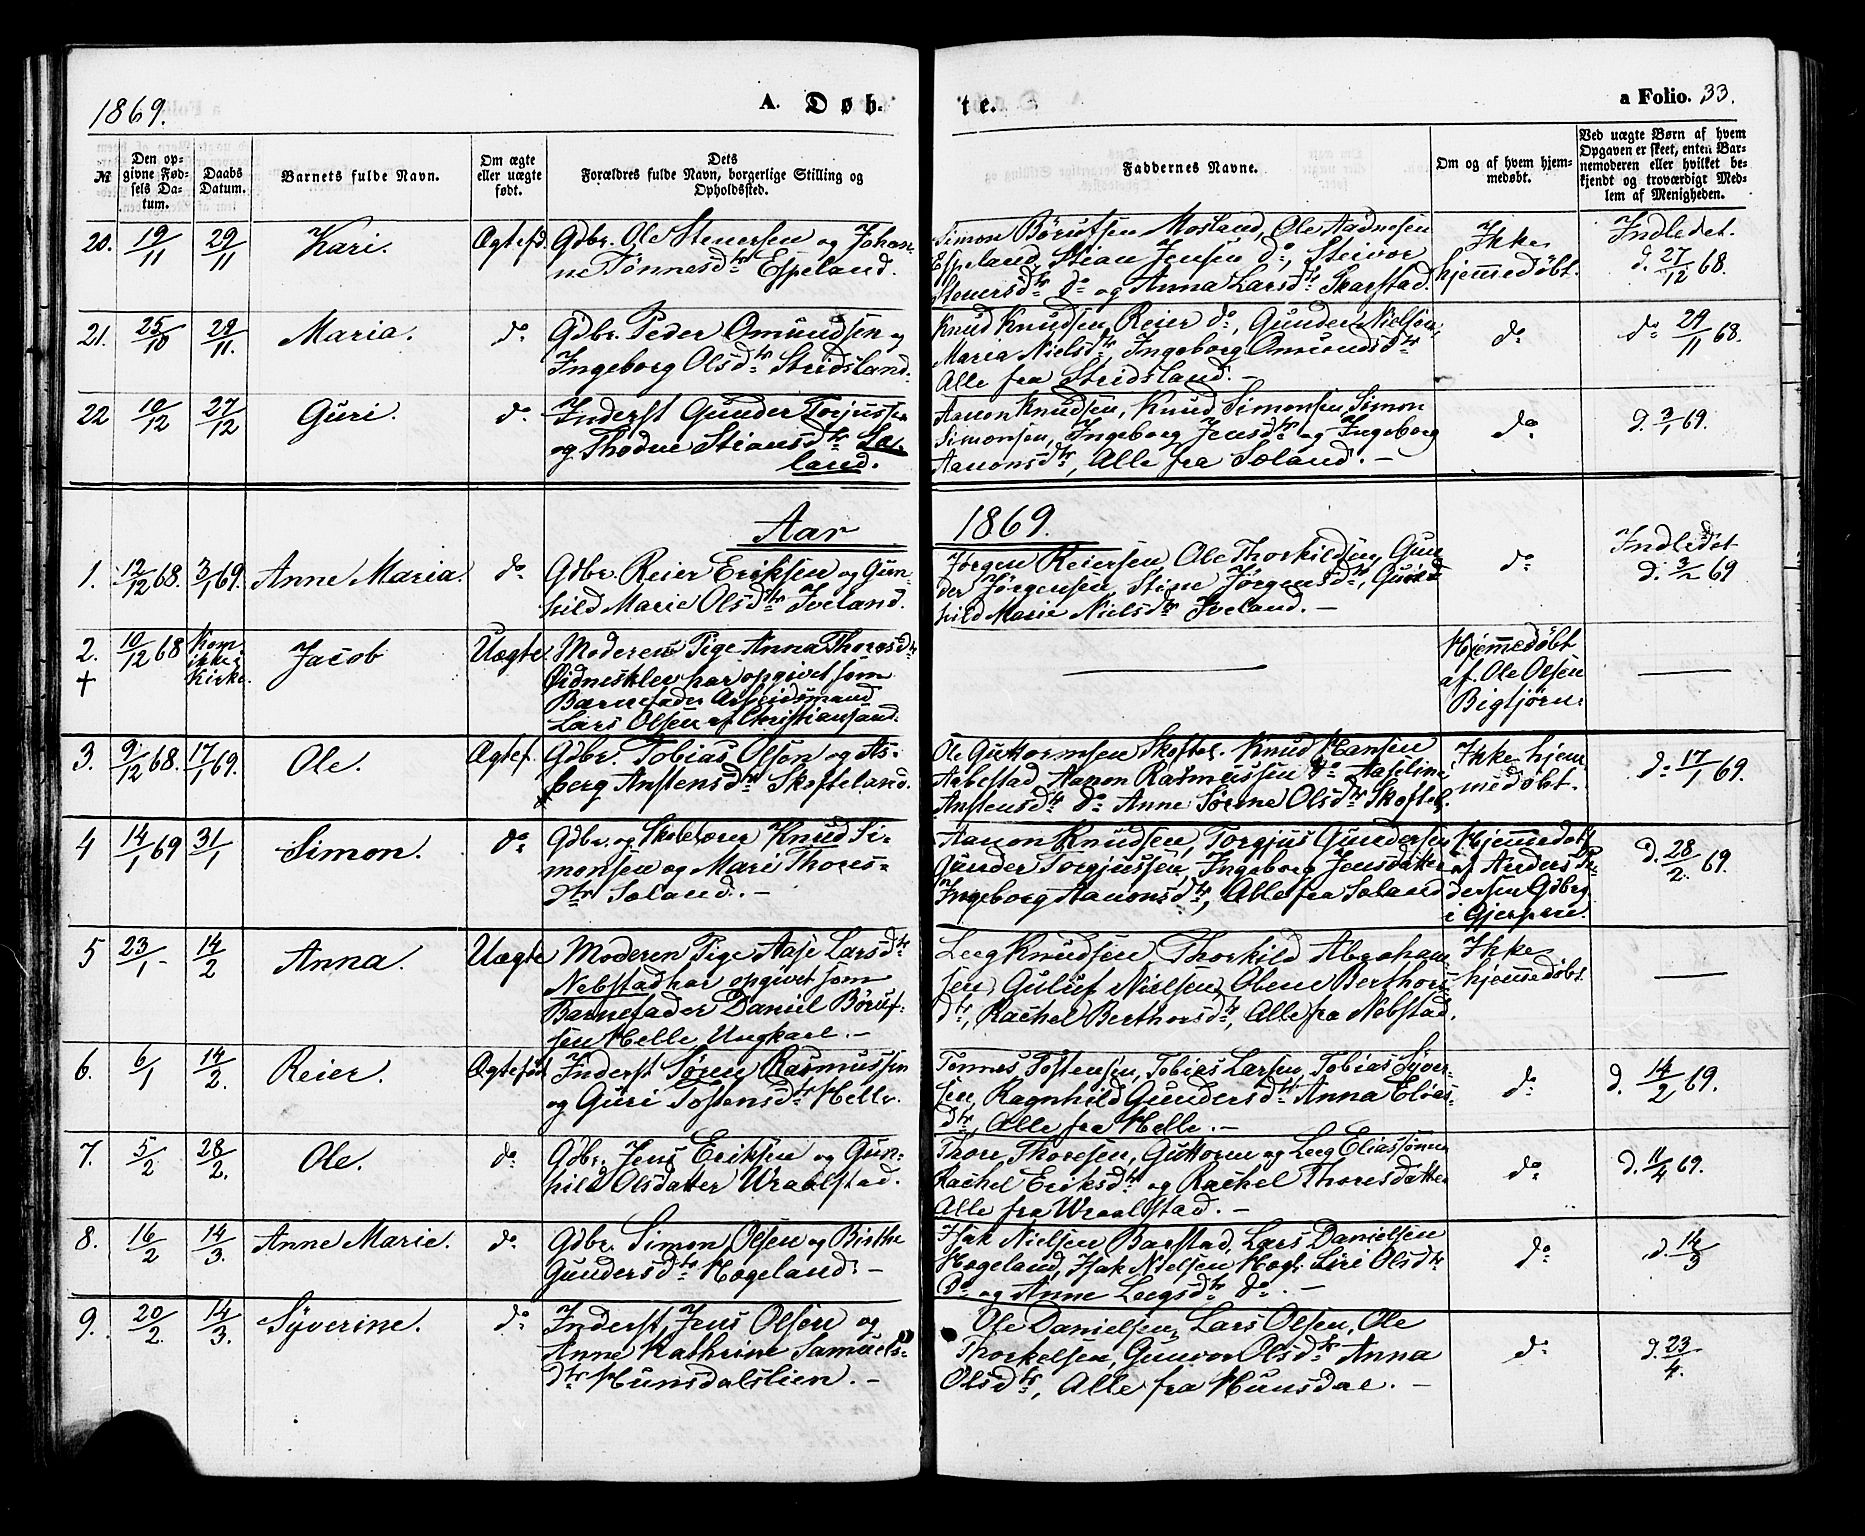 1869.
A. Døb-
te.
a Folio. 33.
№
Den op-
givne Fød-
sels Da-
tum.
Daabs
Datum.
Barnets fulde Navn.
Om ægte
eller uægte
født.
Dets
Forældres fulde Navn, borgerlige Stilling og
Opholdssted.
Faddernes Navne.
Om og af hvem hjem-
medøbt.
Ved uægte Børn af hvem
Opgaven er skeet, enten Bar-
nemoderen eller hvilket be-
kjendt og troværdigt Med-
lem af Menigheden.
20. 19/11 29/11 Kari. Ægtefd. Gdbr. Ole Stenersen og Johan-
ne Tønnesdtr Espeland.
Simon Børufsen Mosland, Ole Aadnesen
Espeland, Stian Jensen do, Steivor
Stenersdtr do og Anna Larsdtr Skarstad.
Ikke
hjemmedøbt.
Indledet.
d. 27/12 68.
21. 25/10 29/11. Maria. do Gdbr. Peder Omundsen og
Ingeborg Olsdtr Stridsland.
Knud Knudsen, Reier do, Gunder Nielsen,
Maria Nielsdtr, Ingeborg Omundsdtr
Alle fra Stridsland. –
do
do 29/11 68.
22 10/12 27/12 Guri. do Inderst Gunder Torjussen
og Thodne Stiansdtr Sæ-
land.
Aanon Knudsen, Knud Simonsen, Simon
Simonsen, Ingeborg Jensdtr og Ingeborg
Aanonsdtr, Alle fra Sæland. –
do
d. 3/1 69.
Aar 1869.
1. 12/12 68. 3/1 69. Anne Maria. do Gdbr. Reier Eriksen og Gun-
hild Marie Olsdtr Iveland.
Jørgen Reiersen, Ole Thorkildsen, Gun-
der Jørgensen, Stine Jørgensdtr,
hild Marie Nielsdtr Iveland. –
do
Indledet
d. 3/2 69
2. 10/12 68 Kom
ikke i
Kirke. Jacob Uægte. Moderen Pige Anna Thoresdtr
har opgivet som
Barnefader Arbeidsmand
Lars Olsen af Christiansand.
Hjemmedøbt
af Ole Olsen
Bigtjørn.
3. 9/12 68. 17/1 69. Ole. Ægtef. Gdbr. Tobias Olsen og As-
berg Anstensdtr Skofteland.
Ole Guttormsen Skoftel. Knud Hansen
Aabestad, Aanon Rasmussen do Aaseline
Anstensdtr do Anne Sørine Olsdtr Skoftel.
Ikke hjem-
medøbt.
do 17/1 69.
4 14/1 69 31/1 Simon. do Gdbr. og Skolelærer Knud Si-
monsen og Mari Thores-
dtr Sæland. –
Aanon Knudsen, Torgjus Gundersen
Gunder Torgjussen, Ingeborg Jensdatter
Ingeborg Aanonsdtr, Alle fra Sæland
Hjemmedøbt
af Anders Pe-
dersen Gdbrg.
i Gjerpen.
d. 28/2 69.
5 23/1 14/2 Anna. Uægte Moderen Pige Aase Larsdtr
Nebstad har opgivet som
Barnefader Daniel Børuf-
sen Helle, Ungkarl. –
Leeg Knudsen, Thorkild Abraham-
sen, Guluf Nielsen, Olene Berthors-
dtr, Rachel Berthorsdtr, Alle fra Nebstad.
Ikke
hjemmedøbt
6. 6/1 14/2. Reier. Ægtefød Inderst Søren Rasmussen
og Guri Tostensdtr Helle.
Tønnes Tostensen, Tobias Larsen, Tobias Syver-
sen, Ragnhild Gundersdtr Anna Elias-
dtr, Alle fra Helle. –
do
d. 14/2 69.
7. 5/2 28/2. Ole. do Gdbr. Jens Eriksen og Gun-
hild Olsdatter Vraalstad.
Thore Thoresen, Guttorm og Leeg Eliassønner
Rachel Eriksdtr og Rachel Thoresdatter
Alle fra Vraalstad. –
do
d. 11/4 69.
8. 16/2 14/3. Anne Marie. do Gdbr. Simon Olsen og Birthe
Gundersdtr Hægeland. –
Isak Nielsen Barstad, Lars Danielsen
Hægeland, Isak Nielsen Hægl. Siri Olsdtr
Do og Anne Leegsdtr do. –
do
d. 14/3
9. 20/2. 14/3. Syverine. do Inderst, Jens Olsen og
Anne Kathrine Samuels-
dtr Hunsdalslien. –
Ole Danielsen, Lars Olsen, Ole
Thorkelsen, Gunvor Olsdtr Anna
Olsdtr, Alle fra Hunsdal. –
do
d. 23/4.